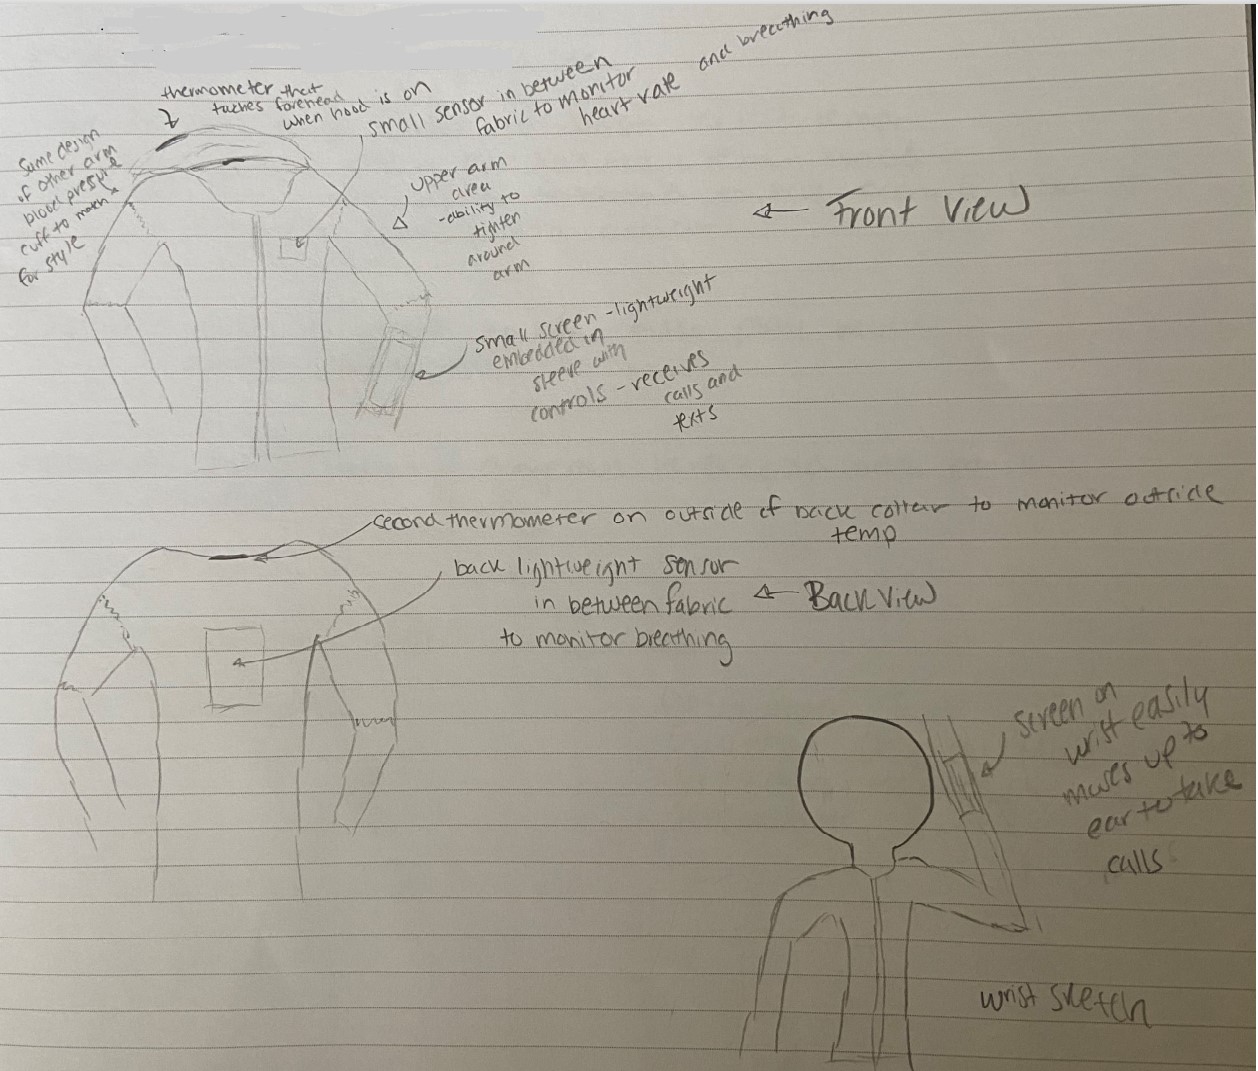 thermometer that
tuches forehead
when hood is on
small sensor in between
fabric to monitor
heart rate and breathing
Same design
of other arm
blood pressure
cuff to match
for style
upper arm
area
-ability to
tighten
around
arm
Front View
small screen - lightweight
embedded in
sleeve with
controls - receives
calls and
texts
second thermometer on outside of back collar to monitor outside
temp
back lightweight sensor
in between fabric
to monitor breathing
Back View
screen on
wrist easily
moves up to
ear to take
calls
wrist sketch